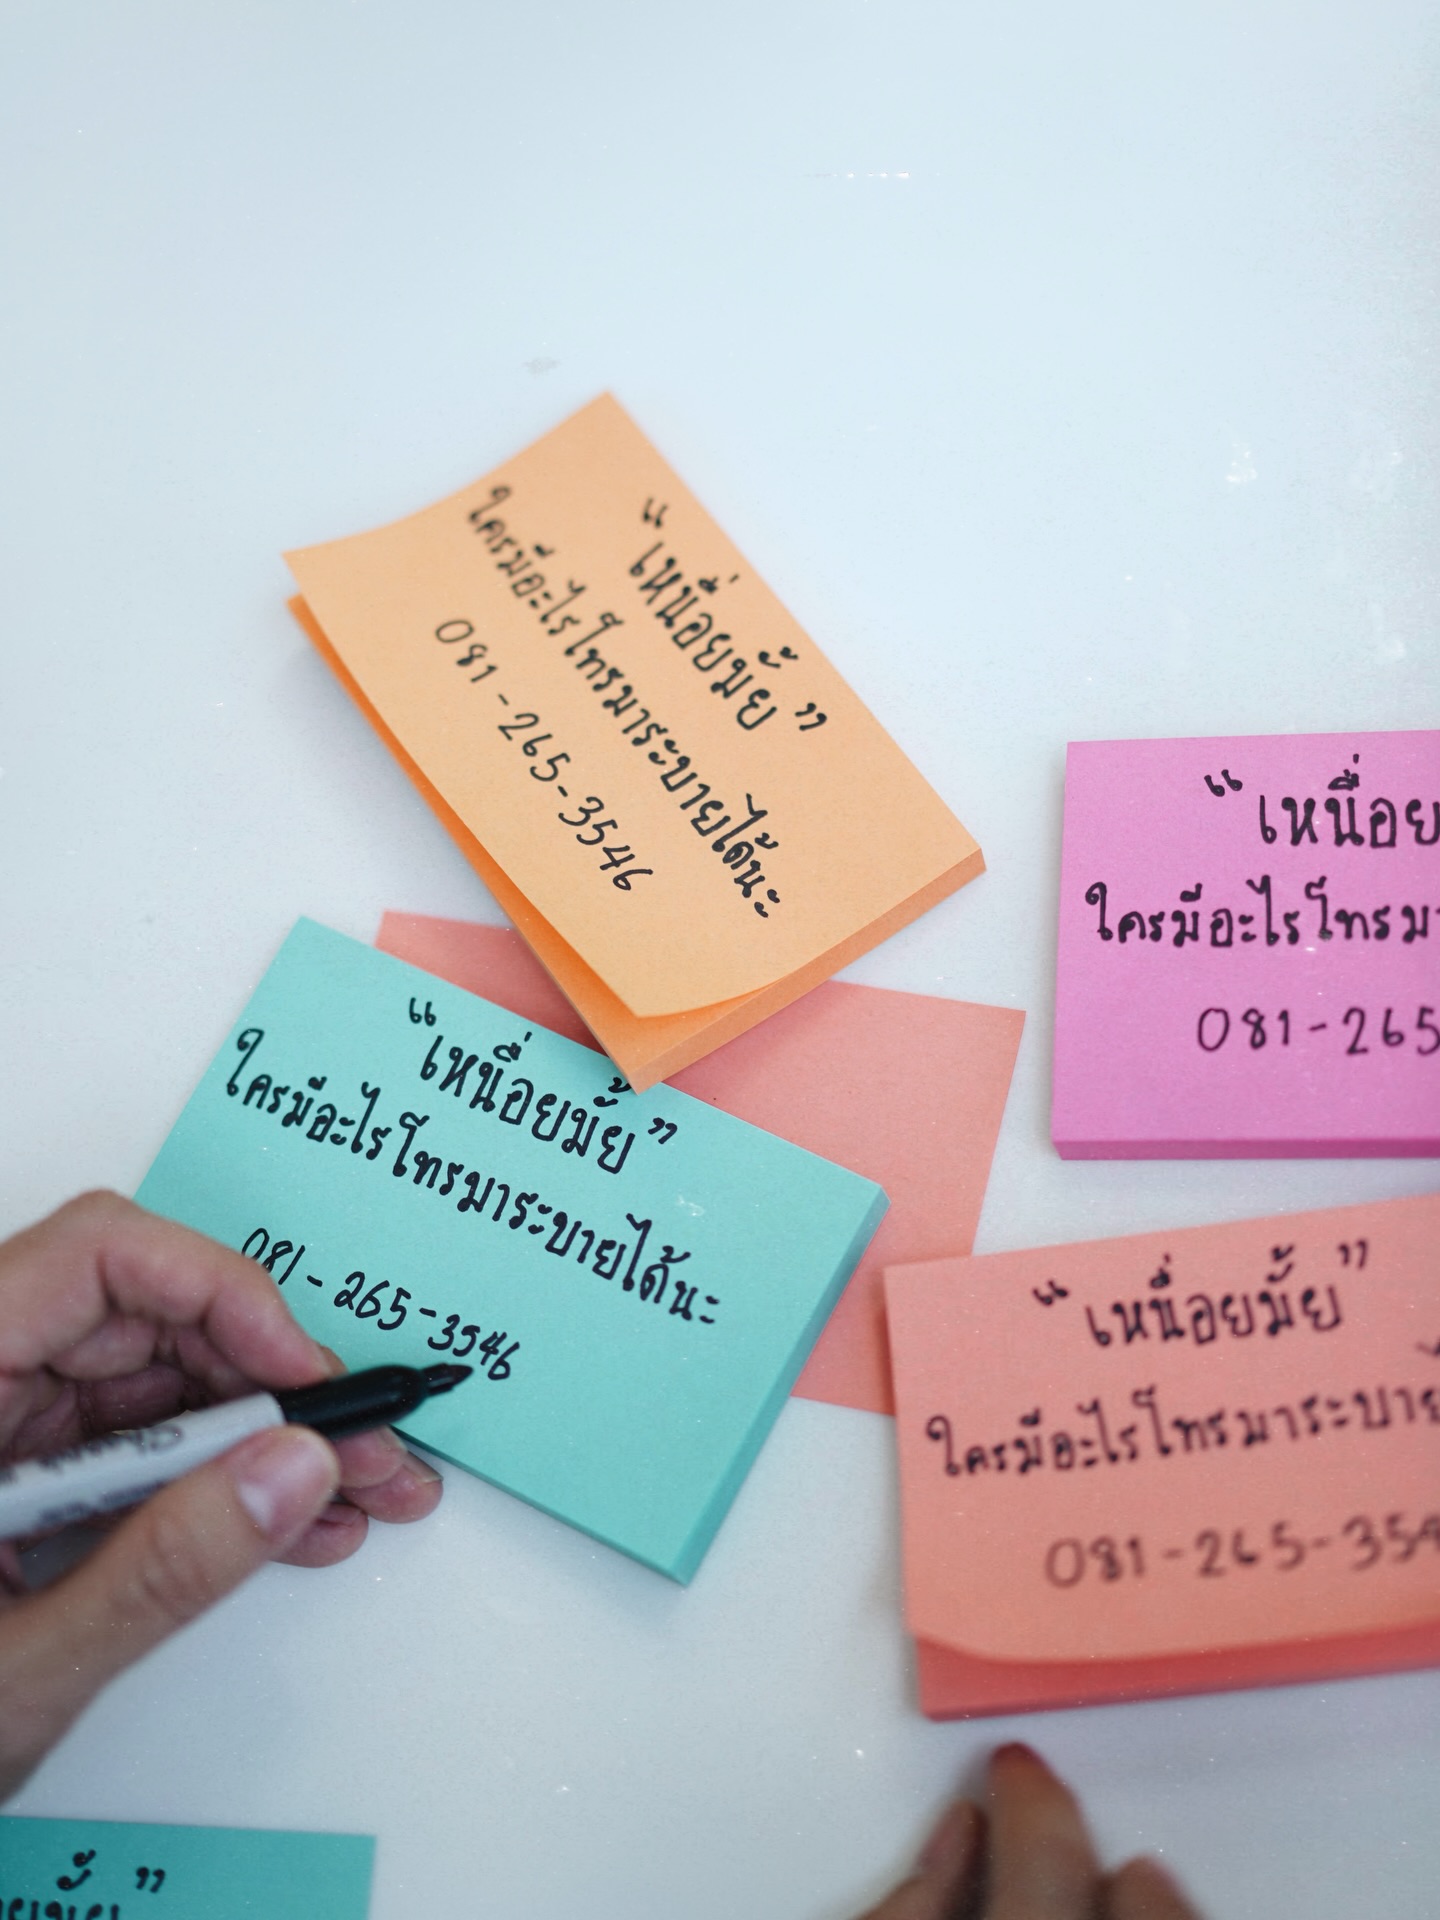 “เหนื่อยมั้ย”
ใครมีอะไรโทรมาระบายได้นะ
081-265-3546
“เหนื่อย
ใครมีอะไรโทรมา
081-265
“เหนื่อยมั้ย”
ใครมีอะไรโทรมาระบายได้นะ
081-265-3546
“เหนื่อยมั้ย”
ใครมีอะไรโทรมาระบาย
081-265-354
ยมั้ย”